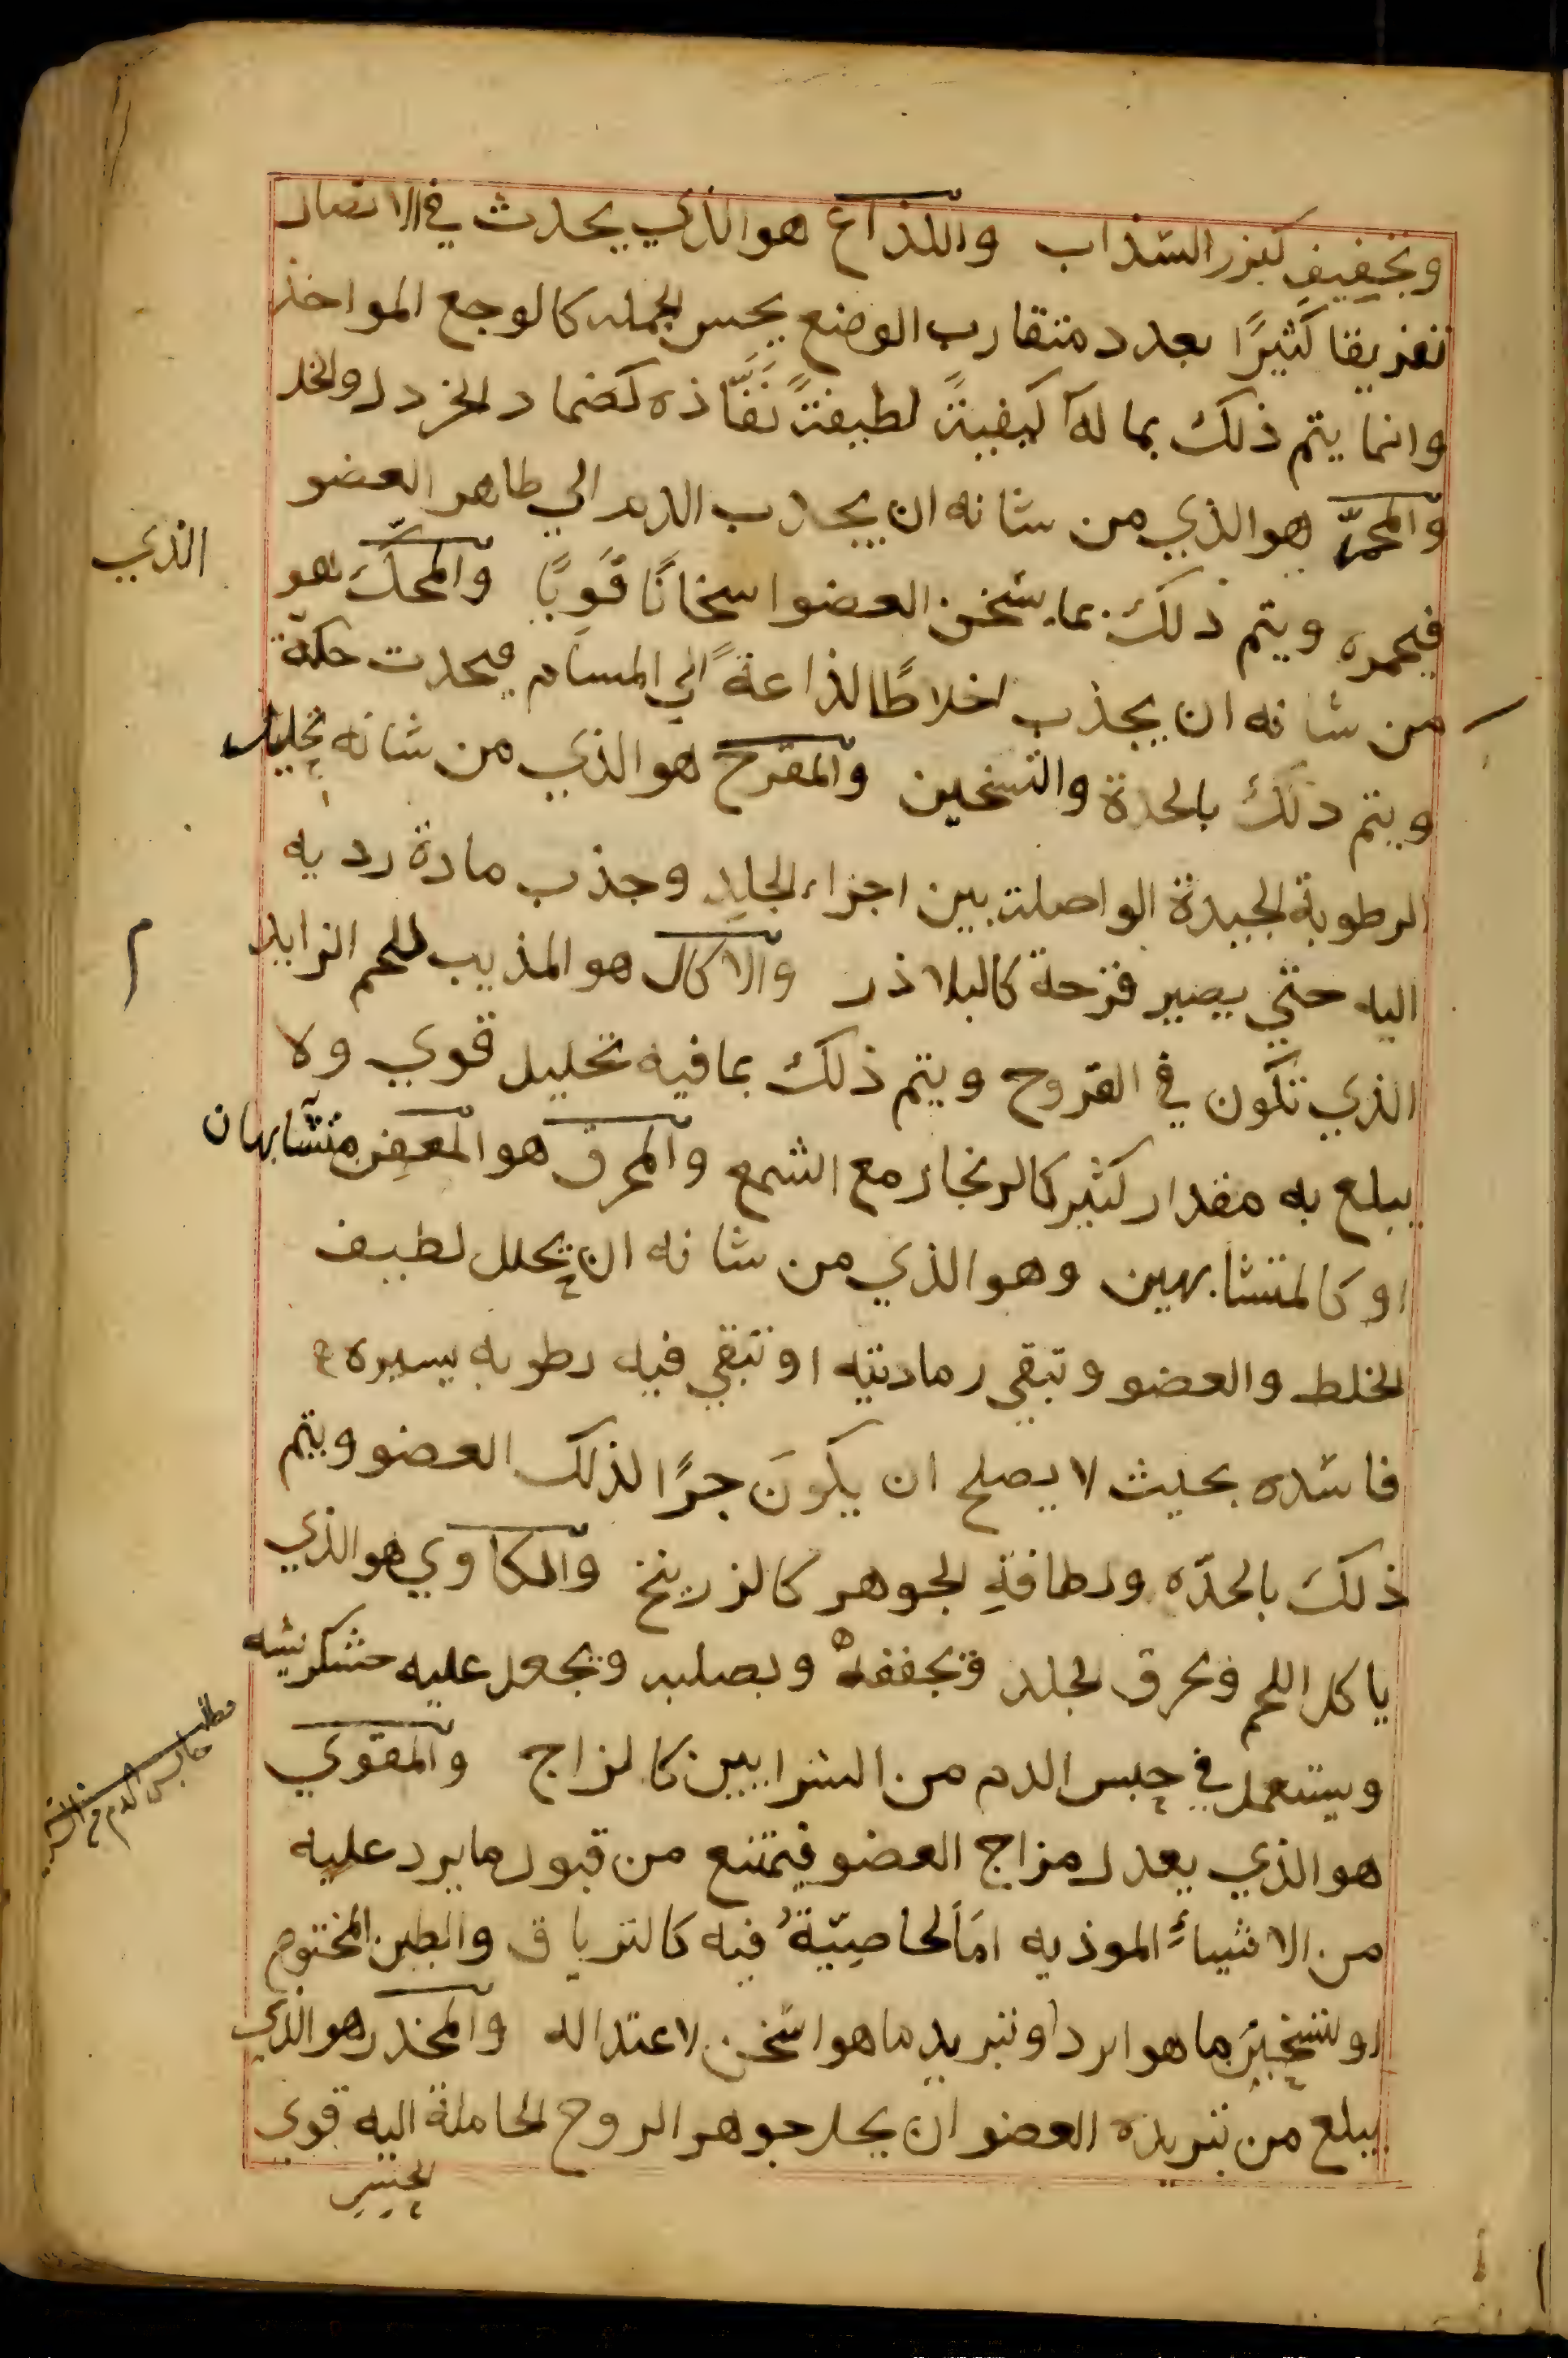 وتجفيف كبزر السذاب واللذاع هو الذي يحدث في الاتصال
تفريقا كثيرًا بعدد متقارب الوضع يحس الجمله كالوجع المواخذ
وانما يتم ذلك بما له كيفيةً لطيفةً نفّاذه كضماد الخردل والخل
والمحمّر هو الذي من شانه ان يجذب الدم الي طاهر العضو
فيحمره ويتم ذلك بما يسخن العضو اسخانًا قويًا والمحكّ هو
الذي
من شانه ان يجذب اخلاطًا لذاعةً الي المسام فيحدث حكة
ويتم دلك بالحدة والتسخين والمقرح هو الذي من شانه تحليل
الرطوبة الجيدة الواصلة بين اجزاء الجلد وجذب مادة رديه
اليه حتي يصير قرحة كالبلاذر والاكال هو المذيب للحم الزايد
م
الذي تكون في القروح ويتم ذلك بما فيه تحليل قوي ولا
يبلع به مقدار كثير كالزنجار مع الشمع والمحرق هو المعفن متشابهان
او كالمتشابهين وهو الذي من شانه ان يحلل لطيف
الخلط والعضو وتبقي رماديته او تبقي فيه رطوبه يسيره
فاسده بحيث لا يصلح ان يكونَ جزًا لذلك العضو ويتم
ذلك بالحدّه ولطافةِ الجوهر كالزرنيخ والكاوي هو الذي
ياكل اللحم ويحرق الجلد ويجففه ويصلبه ويجعل عليه خشكريشه
ويستعمل في حبس الدم من الشرايين كالزاج والمقوي
مطلب
حابس الدم من
هو الذي يعدل مزاج العضو فيمتنع من قبول ما يرد عليه
من الاشياء الموذيه امّا لخاصيّة فيه كالترياق والطين المختوم
او لتسخين ما هو ابرد او تبريد ما هو اسخن لاعتداله والمخدر هو الذي
يبلع من تبريده العضو ان يحل جوهر الروح الحاملة اليه قوي
الحس